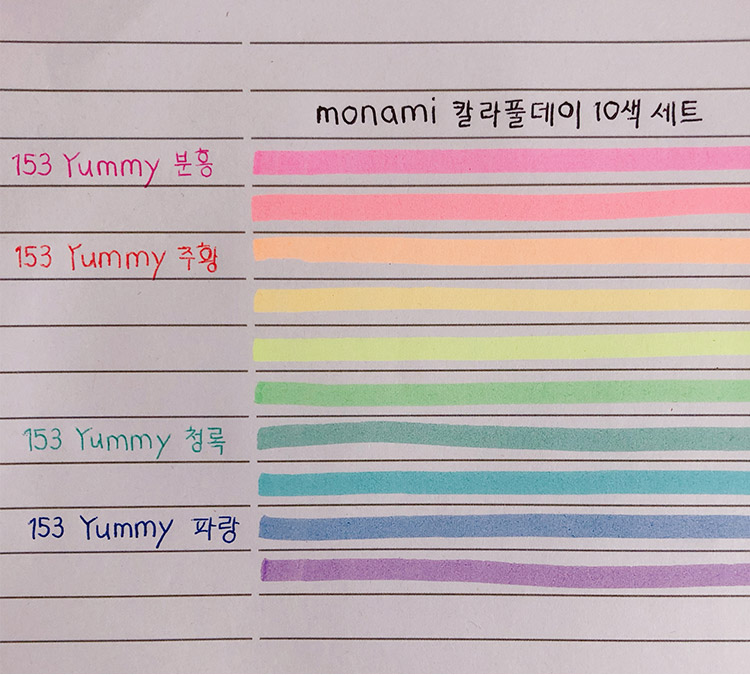 monami 칼라풀데이 10색 세트
153 Yummy 분홍
153 Yummy 주황
153 Yummy 청록
153 Yummy 파랑